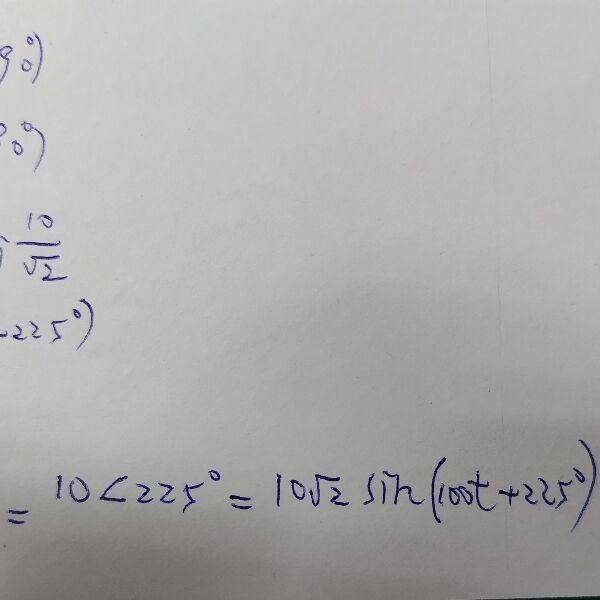 90°)
90°)
j 10/√2
225°)
= 10∠225° = 10√2 sin(100t+225°)